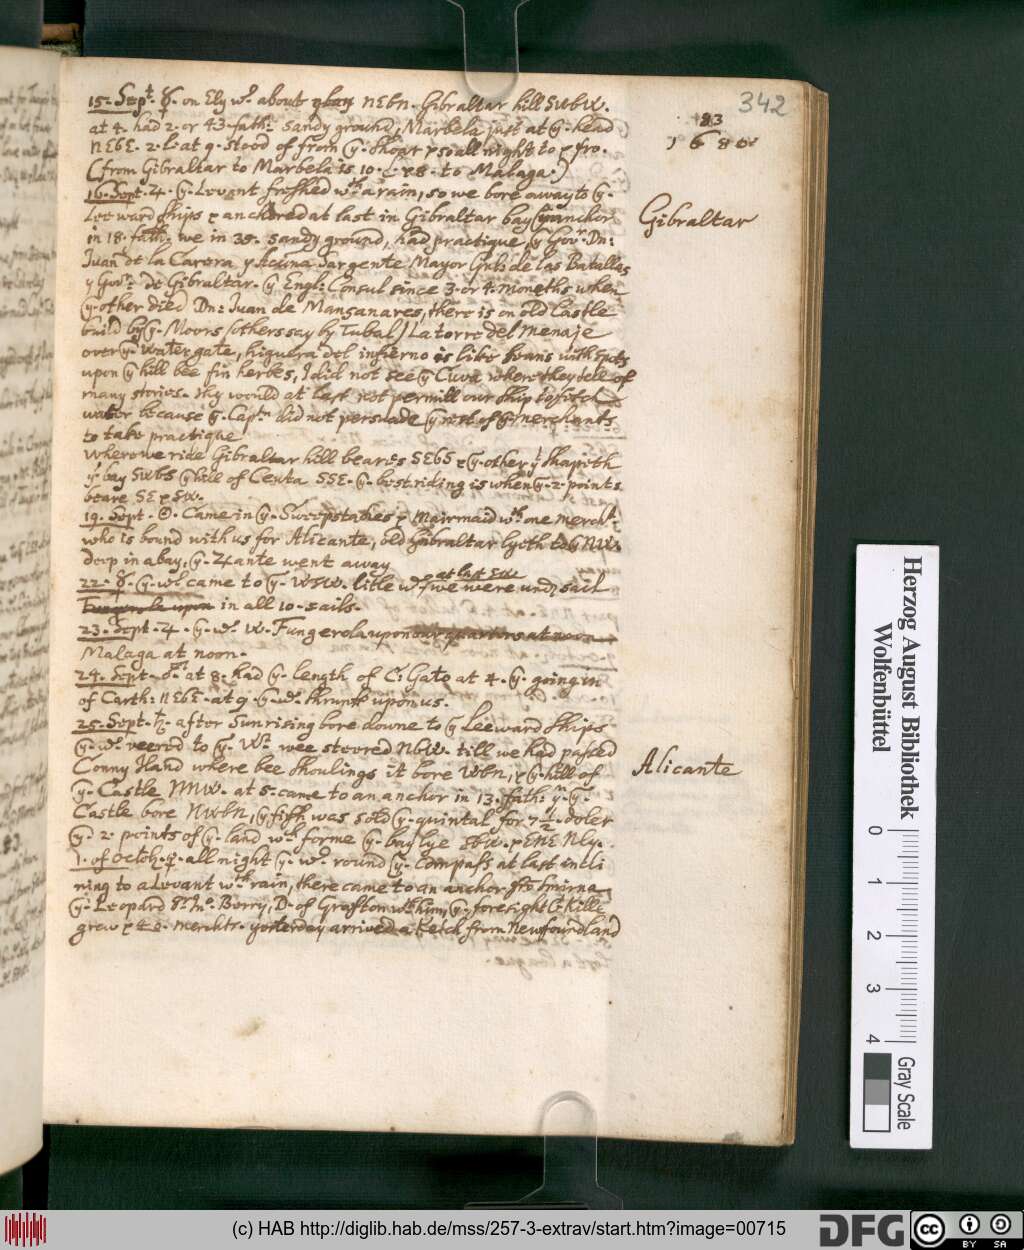 342
83
1680
15. Sept. ☿. on Ely wd. about 9 bay NEbN. Gibraltar hill SWbW.
at 4. had 2. or 43. fath: sandy ground, Marbela just at ye. head
NEbE. 2. L. at 9. stood of from ye. shoar & so all night to & fro.
(from Gibraltar to Marbela is 10. L & 8. to Malaga.)
16. Sept. ♃. ye. Levant freshed wth. a rain, so we bore away to ye.
Lee ward ships & anchored at last in Gibraltar bay, anchor
in 18. fath: we in 35. sandy ground, had practique, ye Govr. Dn:
Juan de la Carera y Acuna Sargente Mayor de las Batallas
y Govr: de Gibraltar. ye Engl: Consul since 3. or 4. moneths when
ye. other died Dn: Juan de Mansanares, there is an old Castle
build by ye. Moors (others say by Tubal) La torre del Menaje
over ye. water gate, higuera del infierno is like beans with spots
upon ye hill bee fin herbes, I did not see ye Cuva where they tell of
many stories. they would at last not permitt our ship to fetch
water because ye. Captn. did not persuade ye rest of ye merchants
to take practique
where we ride Gibraltar hill beares SEbS & ye. other yt shapeth
ye bay SWbS ye hill of Ceuta SSE. ye. best riding is when ye. 2. points
beare SE & SW.
19. Sept. ☉. Came in ye. Sweepstakes & Mairmaid wth one mercht.
who is bound with us for Alicante, old Gibraltar lyeth to ye NW.
deep in a bay, ye. Zante went away
22. ☿. ye. wd. came to ye. WSW. litle wd. at last SW we were undr sail
in all 10. sails.
23. Sept. ♃. ye. wd. W. Fungerola upon our quarters at noon
Malaga at noon.
24. Sept. at 8. had ye. length of C: Gato at 4. ye. going in
of Carth: NEbE. at 9. ye. wd. shrunk upon us.
25. Sept. ♄. after Sunrising bore downe to ye Leeward ships
ye. wd. veered to ye. Wt. wee steered NbW. till we had passed
Conny Iland where bee shoulings it bore WbN, & ye. hill of
ye. Castle NNW. at 5. came to an anchor in 13. fath: yn. ye.
Castle bore NWbN, ye fish was sold ye. quintal for 7½. doler
ye. 2. points of ye. land wch. forme ye. bay lye SbW. & ENE Nly.
1. of Octob. ♀. all night ye. wd. round ye. Compass at last incli
ning to a Levant wth. rain, there came to an anchor fro Smirna
ye. Leopard Sr. Jno. Berry, D. of Grafton wth him, ye. foresight C. Kille
grew & merchtr. yesterday arrived a Ketch from Newfoundland
Gibraltar
Alicante
Herzog August Bibliothek
Wolfenbüttel
0 1 2 3 4
Gray Scale
(c) HAB http://diglib.hab.de/mss/257-3-extrav/start.htm?image=00715
DFG
cc BY SA